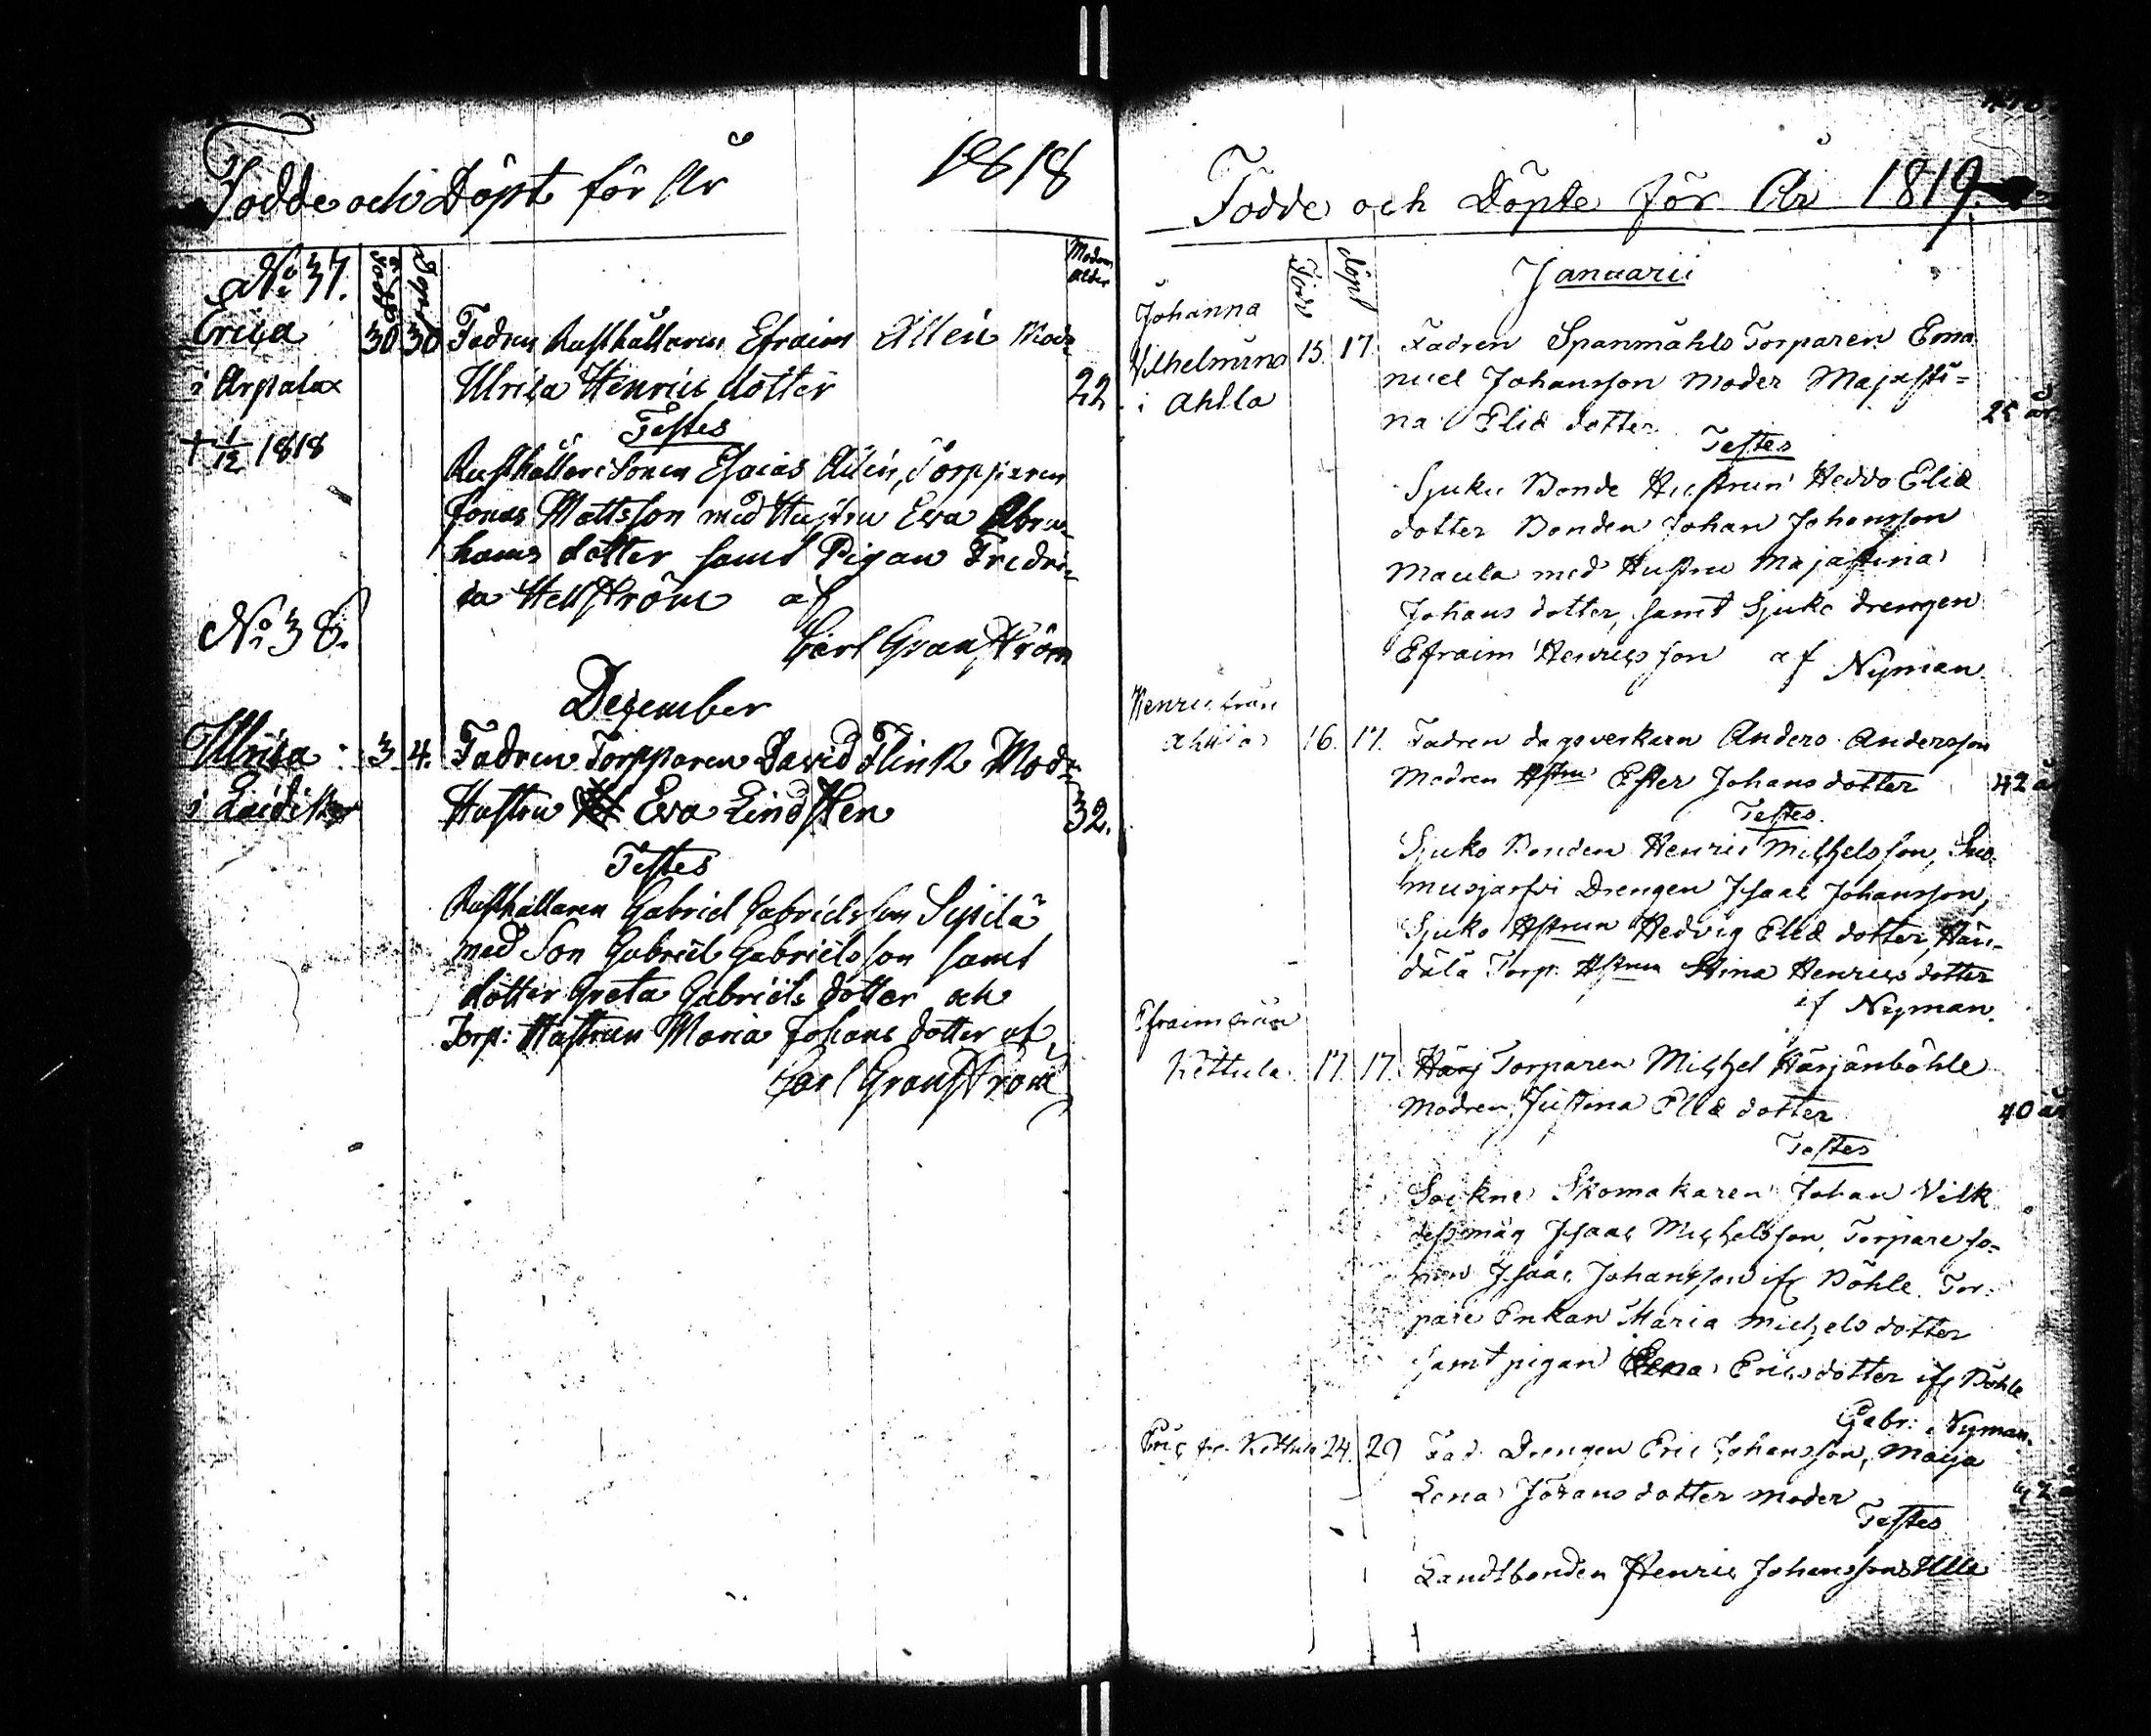 Födde och Döpte för År 1818
No 37.
Född
Döpt
Modrens
ålder
Erica 30 30 Fadren Rusthållaren Efraim Allén Modr.
i Arpalax Ulrica Henrics dotter 22
Testes
† 1/12 1818
Rusthållare Sonen Esaias Allén, Torpparen
Jonas Mattsson med Hustru Eva Abra-
hams dotter samt Pigan Fredri-
ca Hellström af
Carl Granström
No 38.
December
Ulrica 3 4. Fadren Torpparen David Flink Modr.
i Hustru Eva Lindsten 32.
Testes
Rusthållaren Gabriel Gabrielsson Sipilä
med Son Gabriel Gabrielsson samt
dotter Greta Gabriels dotter och
Torp: Hustrun Maria Johans dotter af
Carl Granström
Födde och Döpte för År 1819.
Född
döpt
Januarii
Johanna
Vilhelmina 15. 17. Fadren Spanmåhls Torparen Ema-
i Ahlla nuel Johansson Moder Majasti-
na Eliæ dotter 25 år
Testes
Sjuko Bonde Hustrun Hedda Eliæ
dotter Bonden Johan Johansson
Maula med Hustru Majastina
Johans dotter, samt Sjuko drengen
Efraim Henricsson af Nyman.
Henric från
Ahlla 16. 17. Fadren dagsverkarn Anders Andersson
Modren Hstru Ester Johans dotter 42 år
Testes.
Sjuko Bonden Henric Michelsson, Suo-
musjärfvi Drengen Isaac Johansson,
Sjuko Hstrun Hedvig Eliæ dotter,
Torp. Hstrun Stina Henricsdotter
af Nyman.
Efraim från
Kettula. 17. 17. Härj Torparen Michel Härjänböhle
Modren Justina Eliæ dotter 40 år
Testes
Sockne Skomakaren Johan Vilk
dess måg Isaac Michelsson, Torpare so-
nen Isaac Johansson ifr. Böhle. Tor-
pare Enkan Maria Michels dotter
samt pigan Lena Ericsdotter ifr Böhle
Gabr: Nyman.
Eric fr. Kettula 24. 29 Fad. Drengen Eric Johansson, Maja
Lena Johans dotter moder
Testes
Landtbonden Henric Johansson